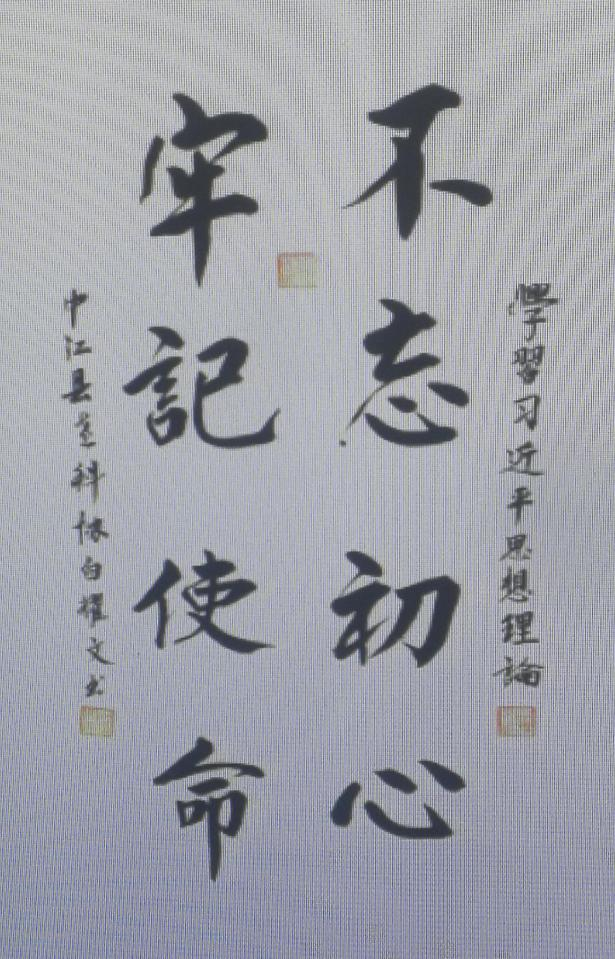 學習习近平思想理論
不忘初心
牢記使命
中江县老科协白耀文书